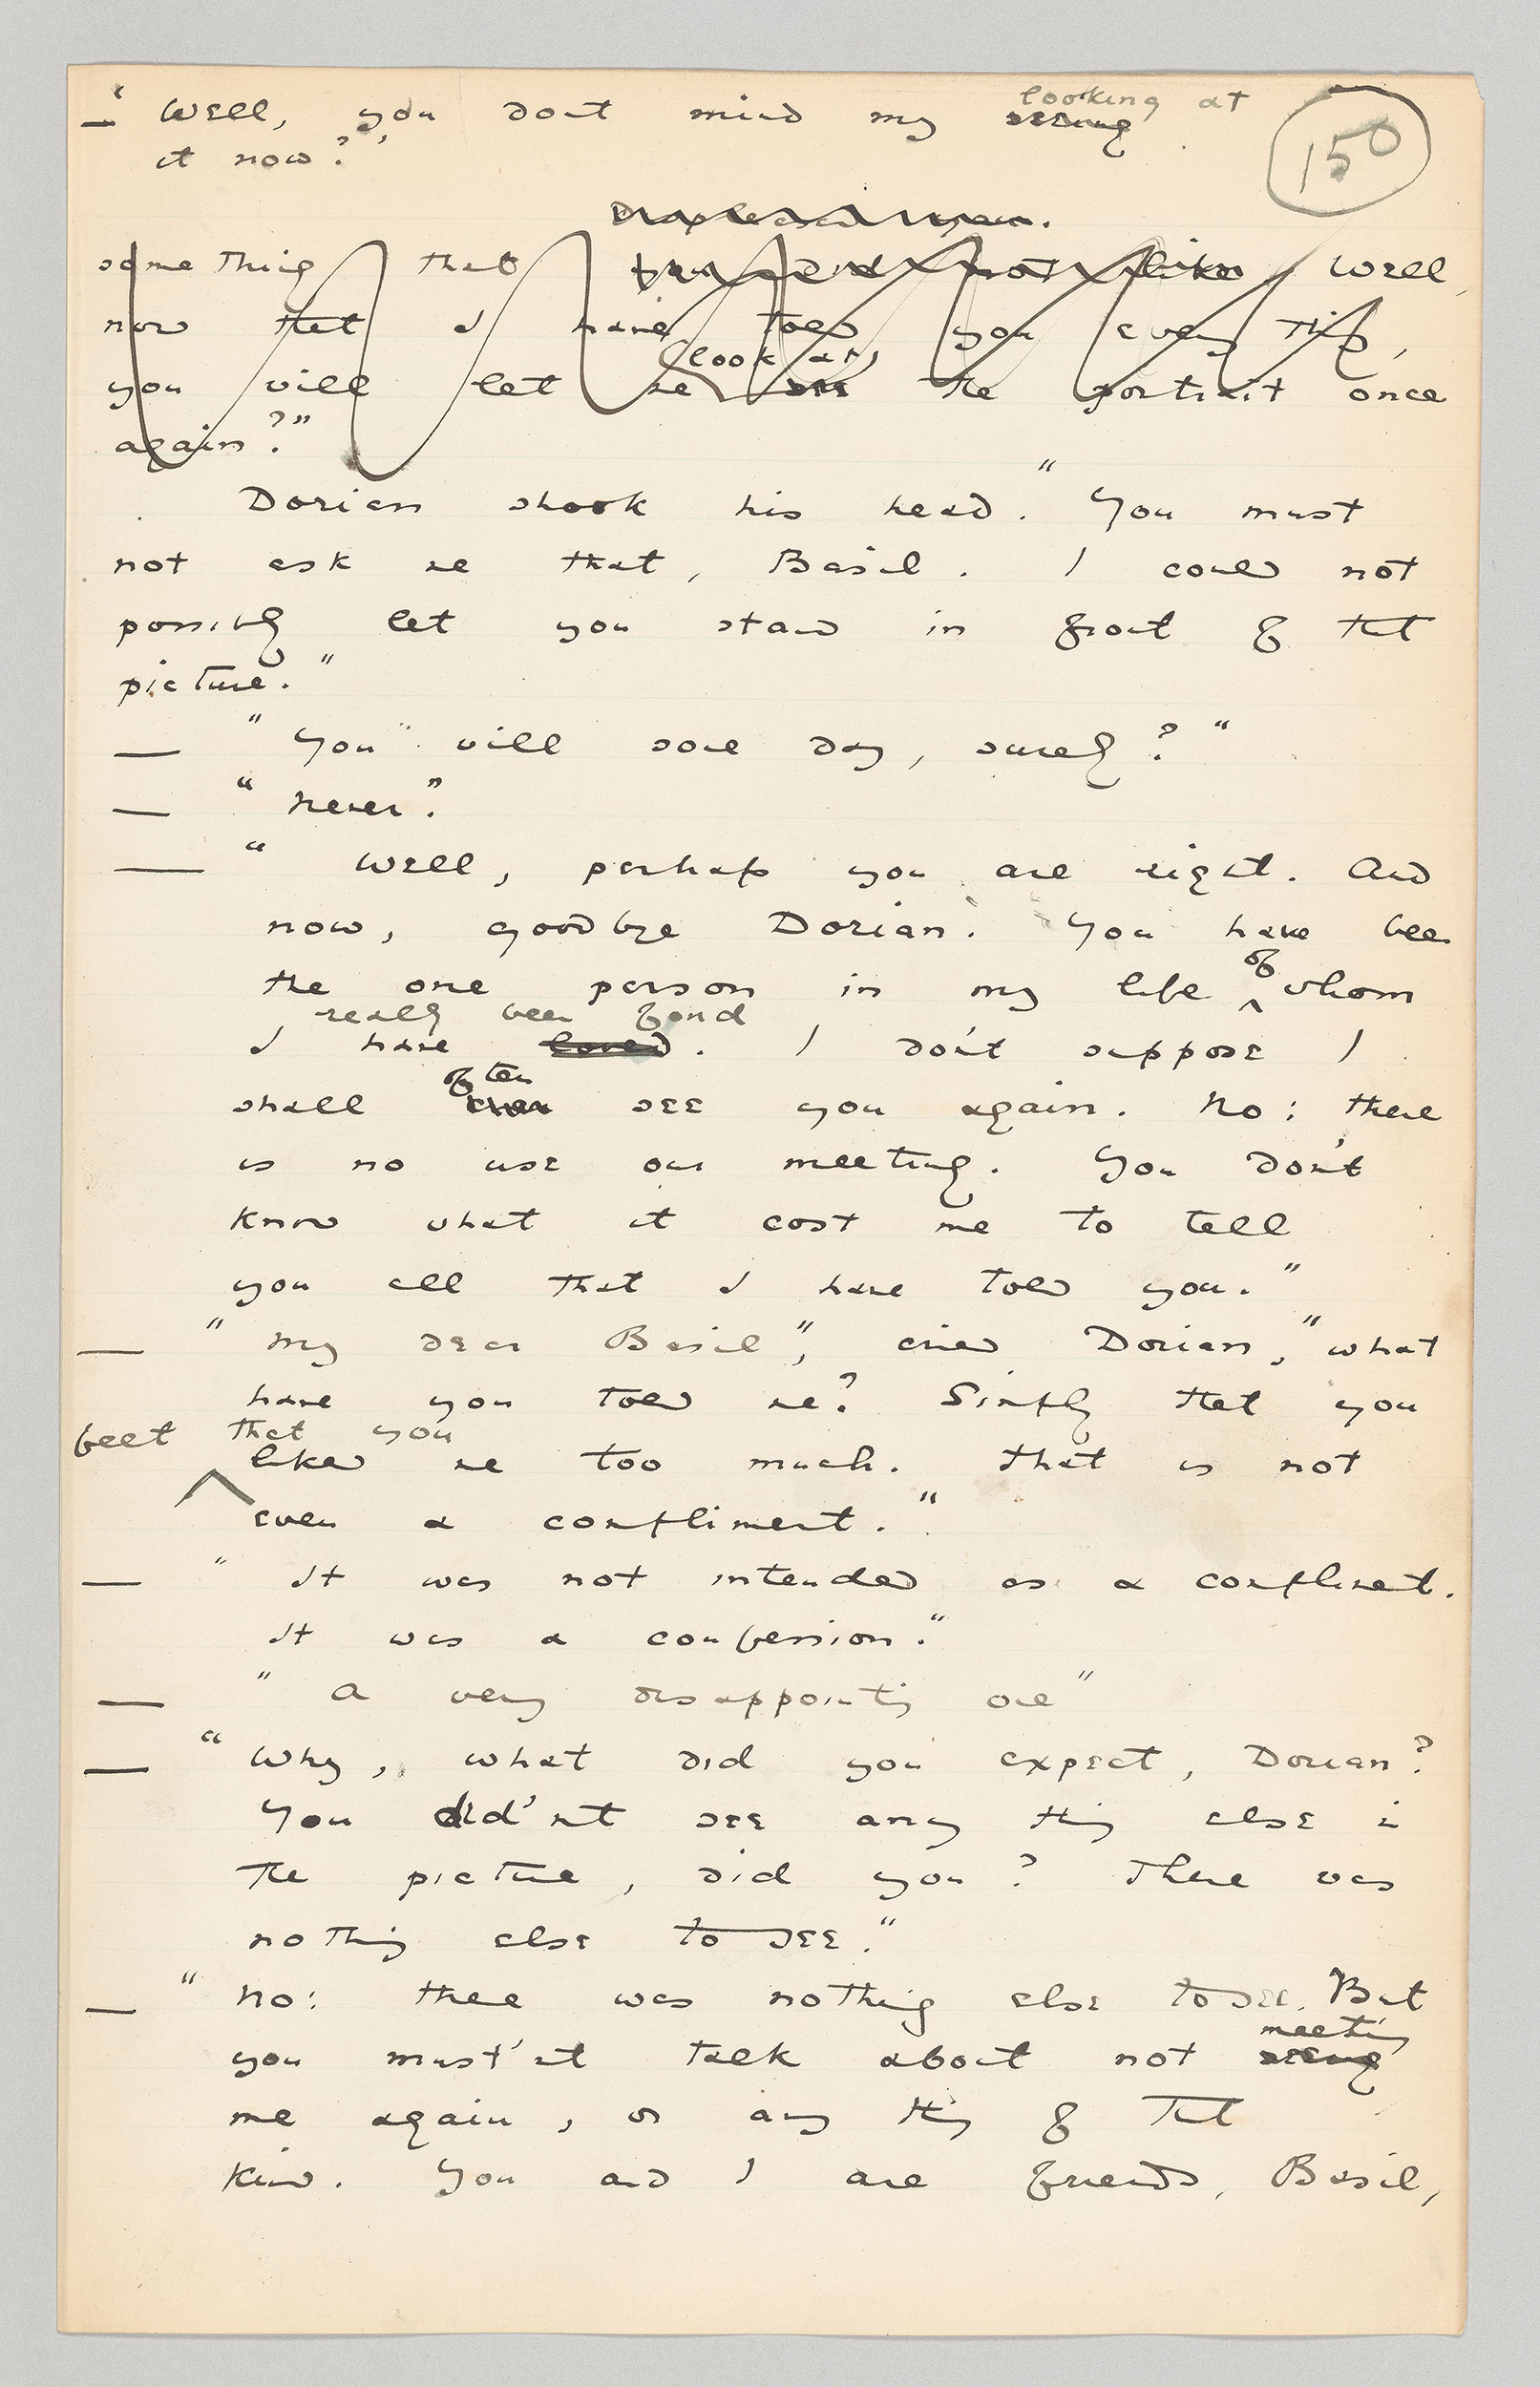 — "Well, you dont mind my seeing looking at
it now?"
150
displeased you.
something that you did not like. Well,
now that I have told you every thing,
look at
you will let me see the portrait once
again?"
Dorian shook his head. "You must
not ask me that, Basil. I could not
possibly let you stand in front of that
picture."
— "You will some day, surely?"
— "Never."
— "Well, perhaps you are right. And
now, goodbye Dorian. You have been
the one person in my life of whom
really been fond
I have loved. I don't suppose I
often
shall ever see you again. No: there
is no use our meeting. You don't
know what it cost me to tell
you all that I have told you."
— "My dear Basil", cried Dorian, "what
have you told me? Simply that you
felt that you
liked me too much. That is not
even a compliment."
— "It was not intended as a compliment.
It was a confession."
— "A very disappointing one"
— "Why, what did you expect, Dorian?
You did'nt see any thing else in
the picture, did you? There was
nothing else to see."
— "No: there was nothing else to see. But
meeting
you must'nt talk about not seeing
me again, or any thing of that
kind. You and I are friends, Basil,